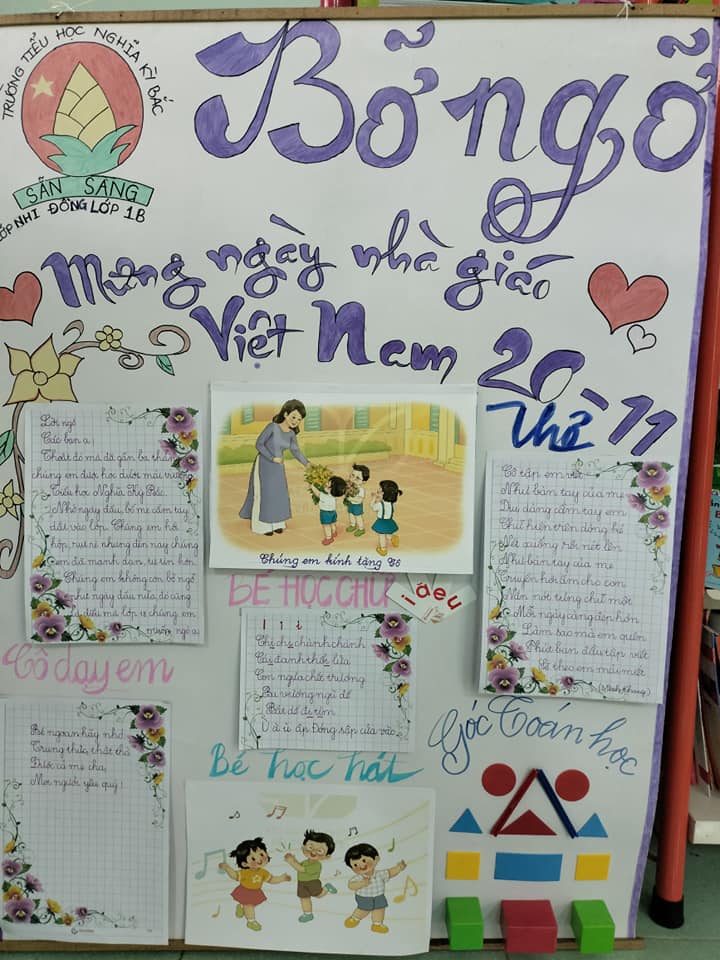 TRƯỜNG TIỂU HỌC NGHĨA KỲ BẮC
SẴN SÀNG
LỚP NHI ĐỒNG LỚP 1B
Bỡ ngỡ
Mừng ngày nhà giáo
Việt Nam 20-11
Lời ngỏ
Các bạn ạ,
Thoắt đó mà đã gần ba tháng
chúng em được học dưới mái trường
Tiểu học Nghĩa Kỳ Bắc.
Nhớ ngày đầu, bố mẹ cầm tay
dắt vào lớp. Chúng em hồi
hộp, rụt rè nhưng đến nay chúng
em đã mạnh dạn, tự tin hơn.
Chúng em không còn bỡ ngỡ
như ngày đầu nữa, đó cũng
là điều mà lớp 1B chúng em
muốn ngỏ ạ.
Chúng em kính tặng Cô
Thơ
Cô tập em viết
Như bàn tay của mẹ
Dịu dàng cầm tay em
Chữ hiện trên dòng kẻ
Nét xuống rồi nét lên
Như bàn tay của mẹ
Truyền hơi ấm cho con
Nắn nót từng chữ một
Mỗi ngày càng đẹp hơn
Làm sao mà em quên
Phút ban đầu tập viết
Sẽ theo em mãi miết
(Minh Khang)
BÉ HỌC CHỮ
i ă e u
l i t
Chi chi chành chành
Cái đanh thổi lửa
Con ngựa chết trương
Ba vương ngũ đế
Bắt dế đi tìm
Ù à ù ập Đóng sập cửa vào.
Cô dạy em
Bé ngoan hãy nhớ
Trung thực, thật thà
Được cả mẹ cha,
Mọi người yêu quý!
Bé học hát
Góc Toán học